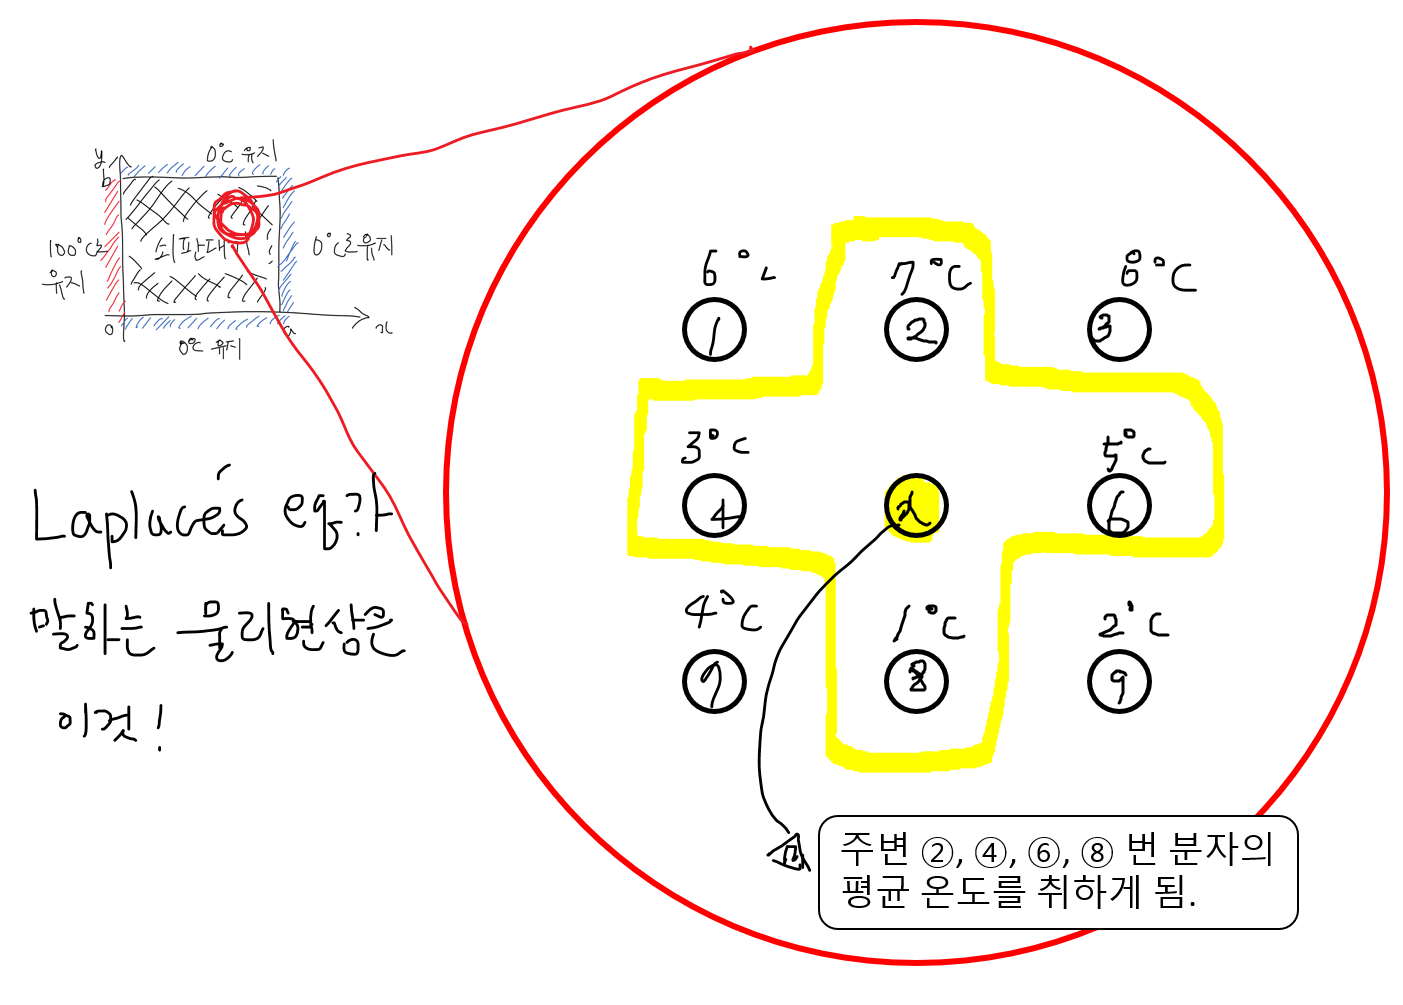 0℃ 유지
y
b
100℃로
유지
쇠판대기
0℃로 유지
0
a
x
0℃ 유지
Laplace's eq.가
말하는 물리현상은
이것!
6℃ 7℃ 8℃
1 2 3
3℃ 5℃
4 6
4℃ 1℃ 2℃
7 8 9
주변 ②, ④, ⑥, ⑧ 번 분자의
평균 온도를 취하게 됨.